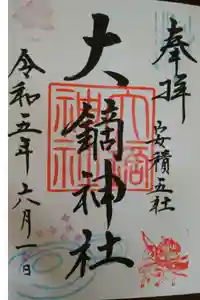 奉拝
安積五社
大鏑神社
大鏑
神社
令和五年六月一日